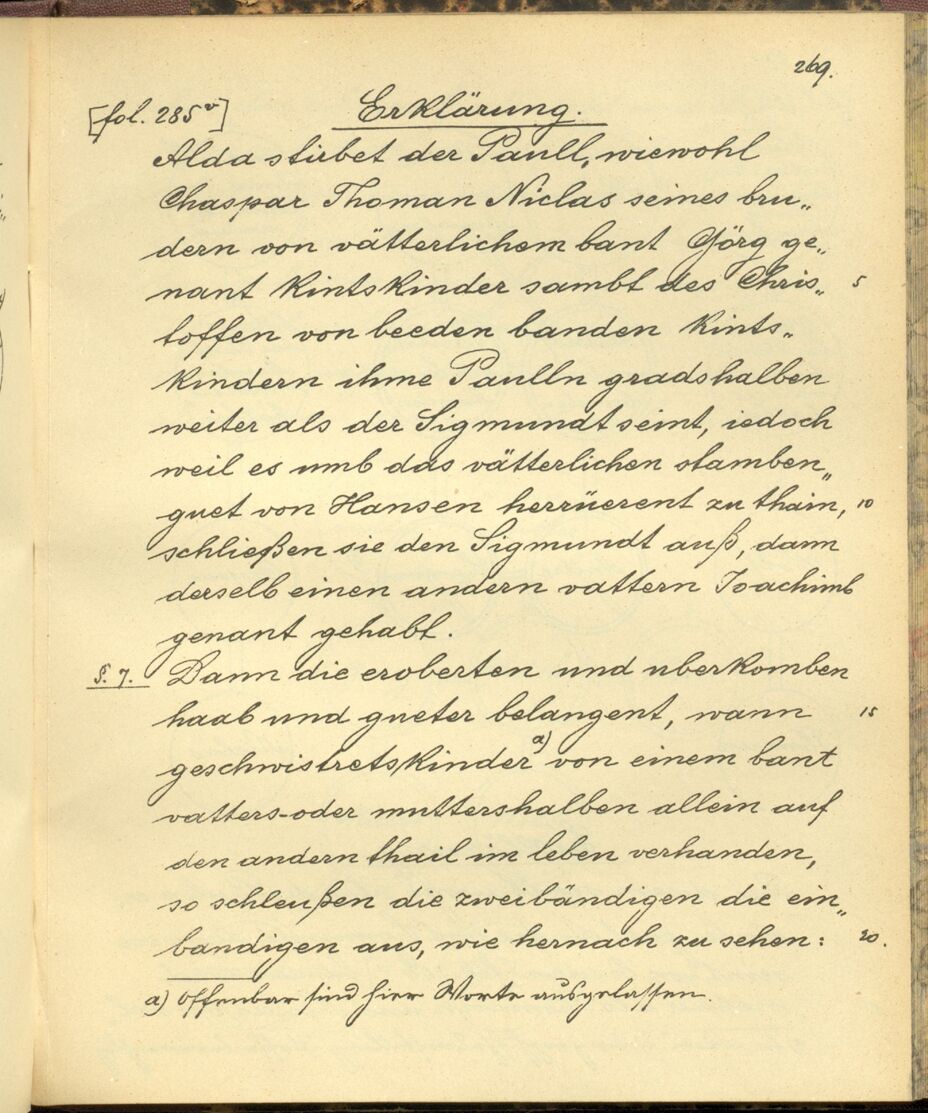 269.
[fol. 285v] Erklärung.
Alda stirbet der Paull, wiewohl
Chaspar Thoman Niclas seines bru„
dern von vätterlichem bant Görg ge„
nant Kintskinder sambt des Chris„ 5
toffen von beeden banden Kints„
Kindern ihme Paulln gradshalben
weiter als der Sigmundt seint, iedoch
weil es umb das vätterlichen stamben„
guet von Hansen herrüerent zu thain, 10
schließen sie den Sigmundt auß, dann
derselb einen andern vattern Joachimb
genant gehabt.
§. 7. Dann die eroberten und uberkomben
haab und gueter belangent, wann 15
geschwistretskinder a) von einem bant
vatters-oder muttershalben allein auf
den andern thail im leben verhanden,
so schleußen die zweibändigen die ein„
bandigen aus, wie hernach zu sehen: 20.
a) Offenbar sind hier Worte ausgelassen.